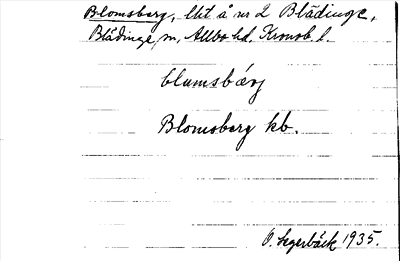 Blomsberg, lht å nr 2 Blädinge,
Blädinge sn, Allbo hd, Kronob. l.
blumsbärj
Blomsberg kb.
O. Segerbäck 1935.